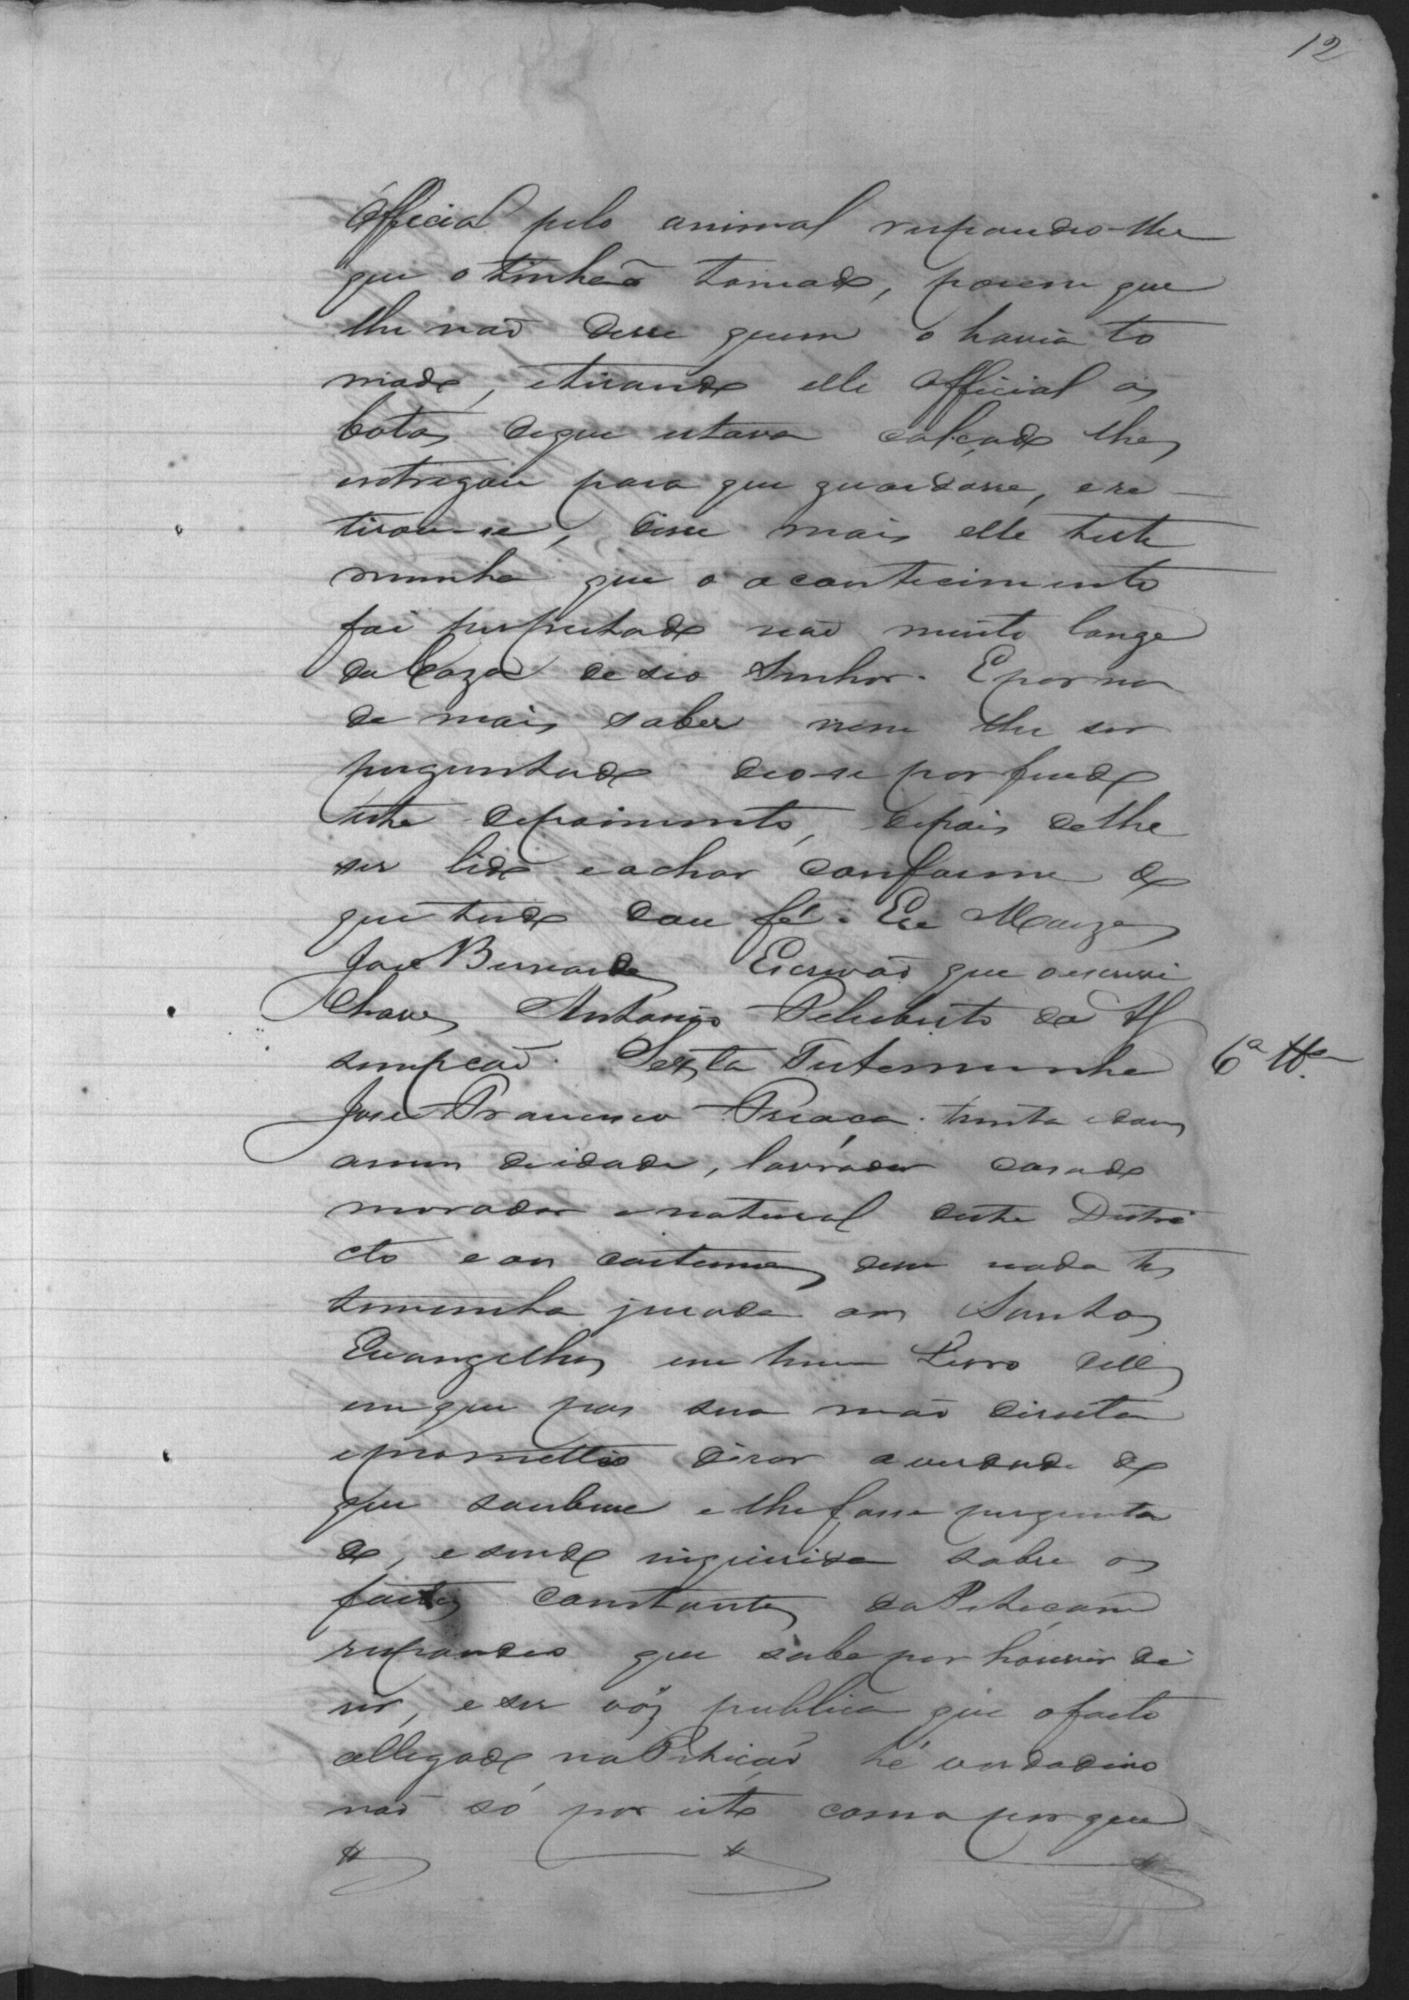 12
Official pelo animal respondeo-lhe
que o tinhão tomado, porem que
lhe não disse quem o havia to
mado, etirando elle official as
botas deque estava calçado lhe
entregou para que guardasse, ere
tirou-se, disse mais elle teste
munha que o acontecimento
foi perpretado não muito longe
da Caza de seo Senhor. E por na
da mais saber nem lhe ser
perguntado deo-se por findo
este depoimento, depois delhe
ser lido e achar conforme do
que tudo dou fé. Eu
José Bernardes Escrivão que o escrevi
Chaves Antonio da As
sumpcão. Sexta Testemunha
6ª Tª
José Francisco trinta e dous
annos deidade, lavrador casado
morador enatural deste Distri
cto e aos costumes disse nada tes
temunha jurada aos Santos
Evangelhos em hum Livro delles
emque pos sua mão direita
eprometteo diser averdade do
que soubesse e lhe fosse pergunta
do, esendo inquirida sobre os
factos constantes da Peticam
respondeo que sabe por houvir di
ser, e ser vóz publica que ofacto
allegado na Peticão hé verdadeiro
não só por isto como por que